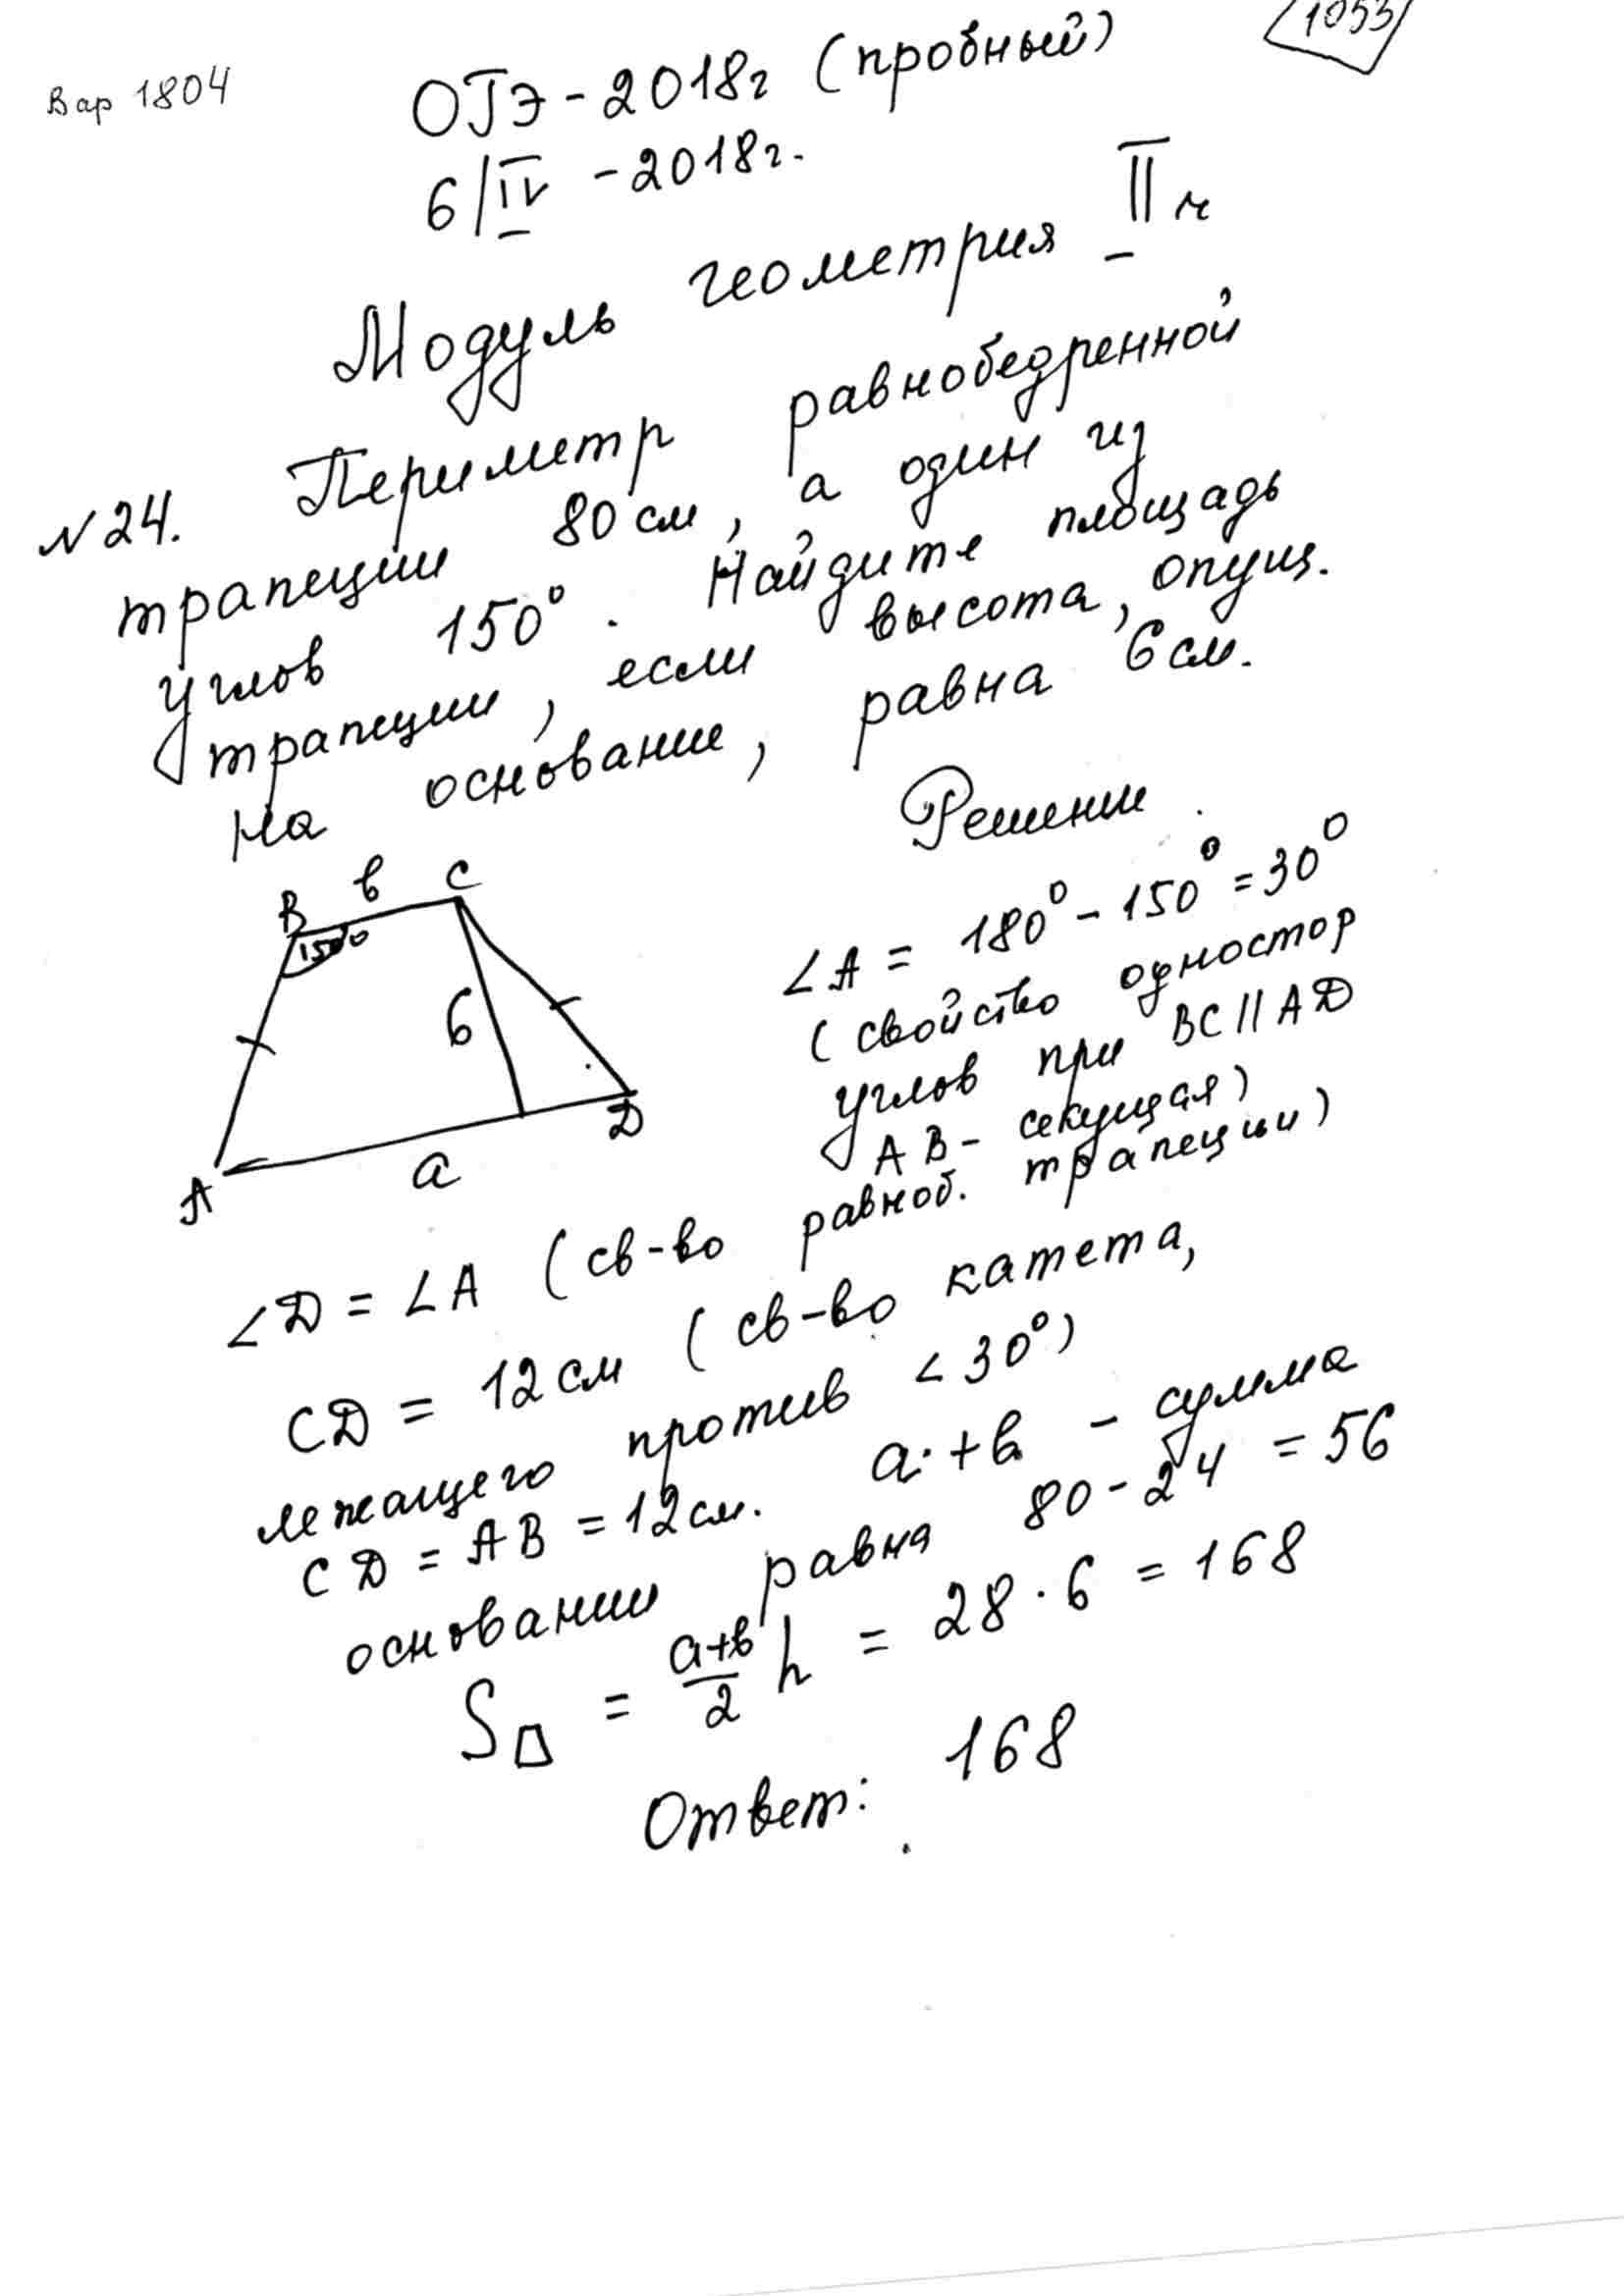 1053
Вар 1804
ОГЭ - 2018г (пробный)
6/IV - 2018г.
Модуль геометрия II ч
№24. Периметр равнобедренной
трапеции 80 см, а один из
углов 150°. Найдите площадь
трапеции, если высота, опущ.
на основание, равна 6 см.
Решение.
B в C
150°
6
A a D
∠A = 180° - 150° = 30°
(свойство одностор
углов при BC || AD
AB - секущая)
∠D = ∠A (св-во равноб. трапеции)
CD = 12 см (св-во катета,
лежащего против ∠30°)
CD = AB = 12 см. a + в - сумма
оснований равна 80 - 24 = 56
S = a+в/2 h = 28 · 6 = 168
Ответ: 168